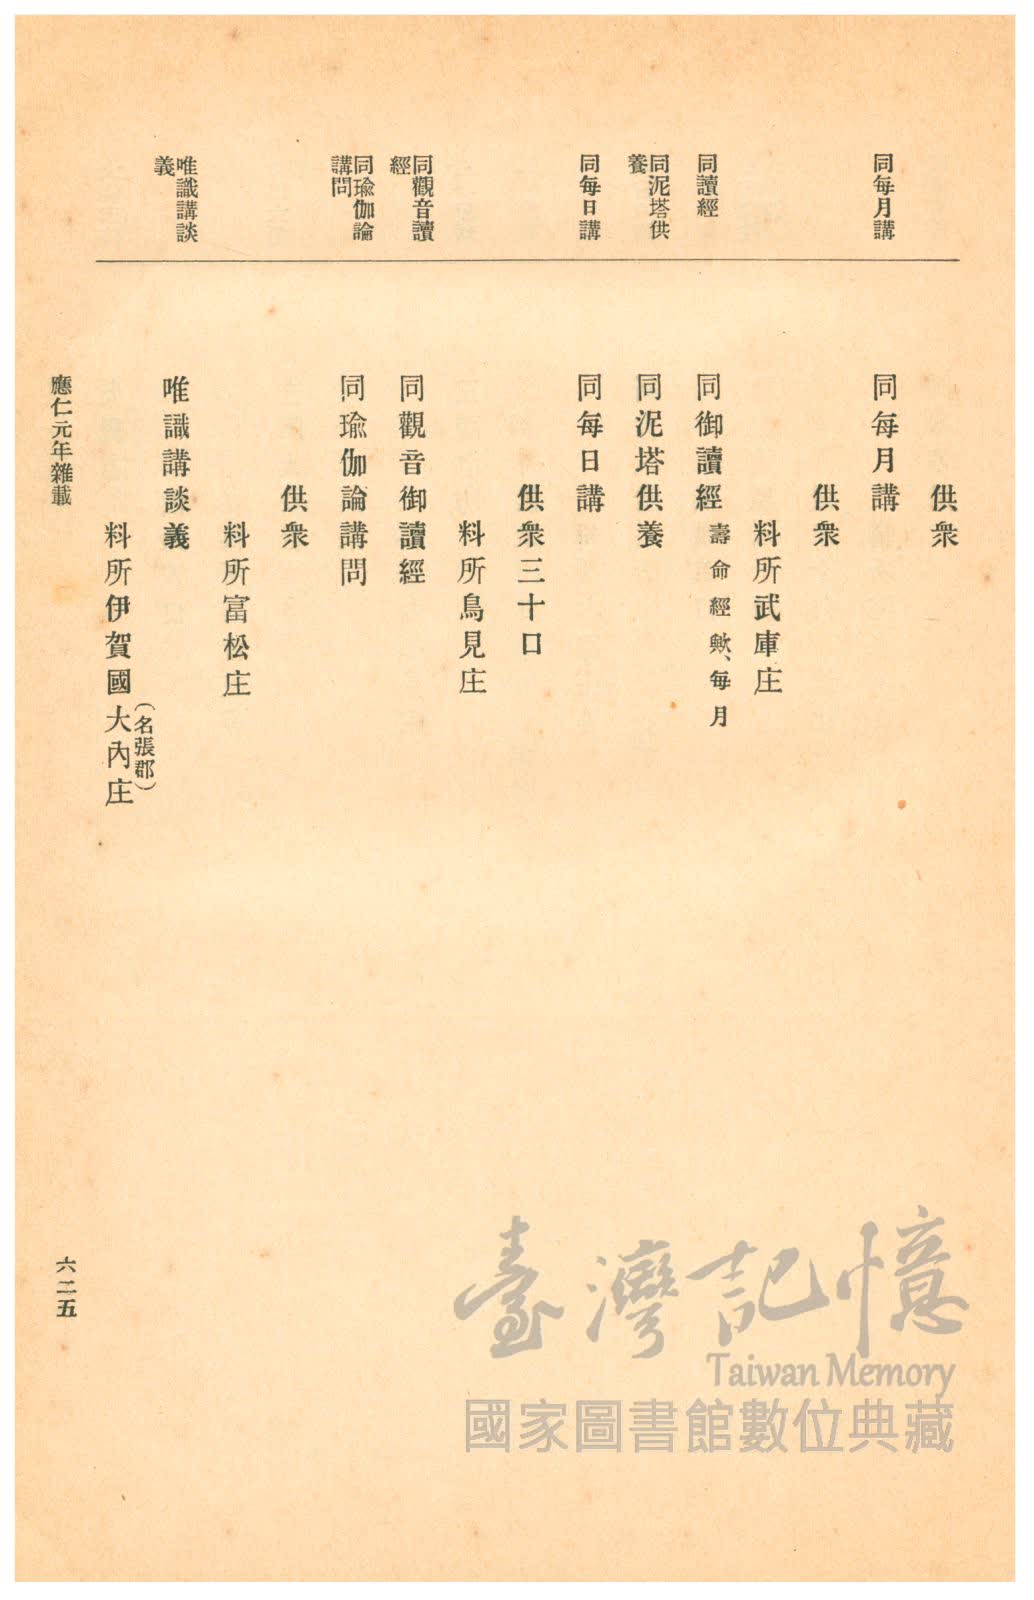 同每月講
同讀經
同泥塔供
養
同每日講
同觀音讀
經
同瑜伽論
講問
唯識講談
義
供衆
同每月講
供衆
料所武庫庄
同御讀經 壽命經歟、每月
同泥塔供養
同每日講
供衆三十口
料所鳥見庄
同觀音御讀經
同瑜伽論講問
供衆
料所富松庄
唯識講談義
(名張郡)
料所伊賀國大內庄
應仁元年雜載
六二五
臺灣記憶
Taiwan Memory
國家圖書館數位典藏